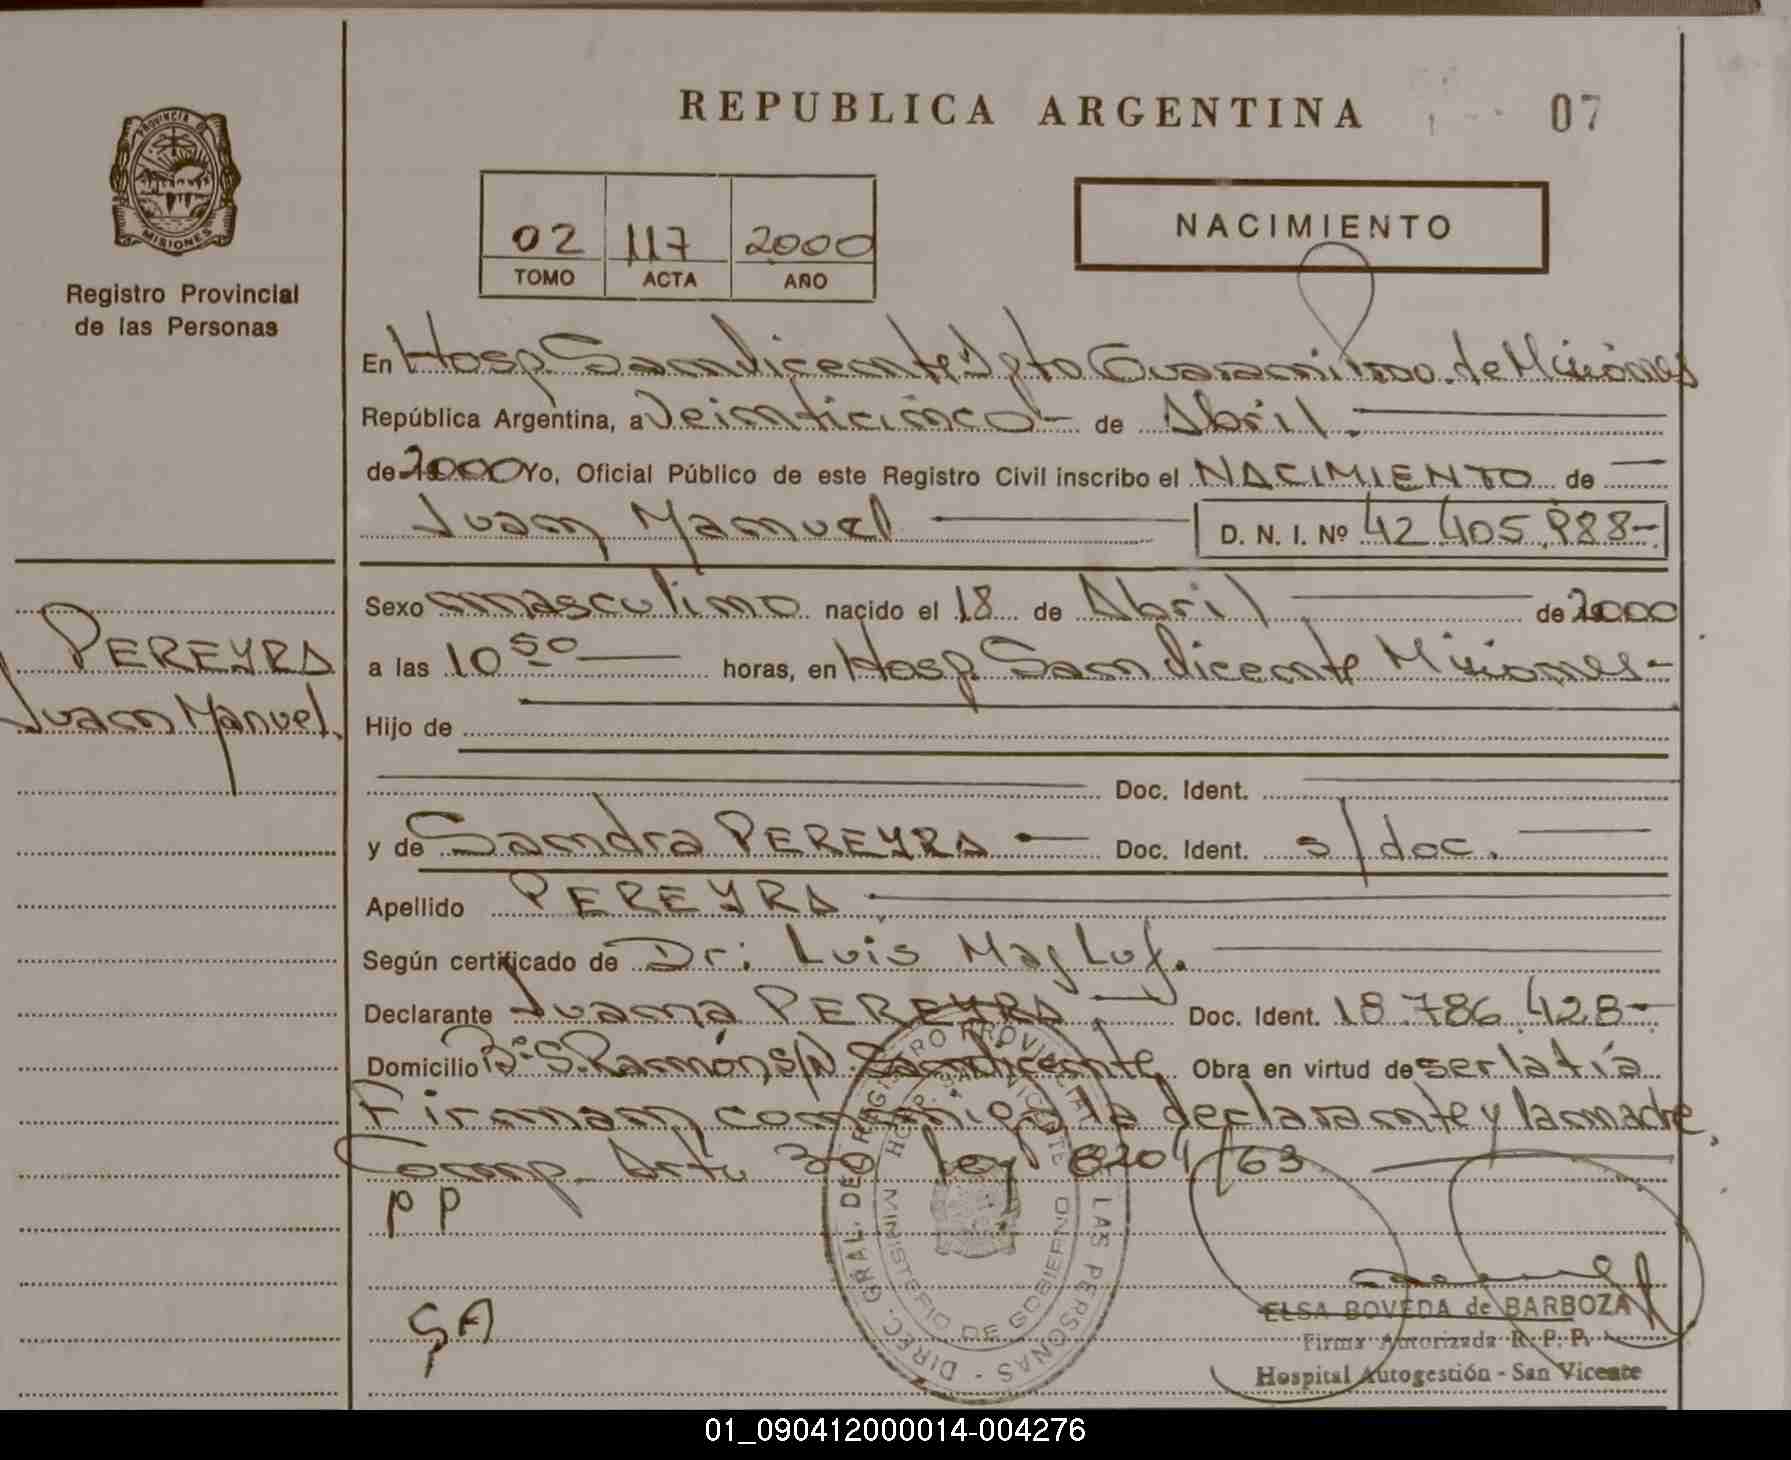 REPUBLICA ARGENTINA
07
PROVINCIA DE
MISIONES
Registro Provincial
de las Personas
02 117 2000
TOMO ACTA AÑO
NACIMIENTO
En Hosp. San Vicente Dpto Guaraní Prov. de Misiones
República Argentina, a Veinticinco - de Abril.
de 2000 Yo, Oficial Público de este Registro Civil inscribo el NACIMIENTO de
Juan Manuel D. N. I. Nº 42.405.988-
Sexo masculino nacido el 18 de Abril de 2000
PEREYRA
a las 10 50 horas, en Hosp. San Vicente Misiones-
Juan Manuel.
Hijo de
Doc. Ident.
y de Sandra PEREYRA Doc. Ident. s/doc.
Apellido PEREYRA
Según certificado de Dr: Luis Magluf.
Declarante Juana PEREYRA Doc. Ident. 18.786.428-
Domicilio Bº S. Ramón s/N San Vicente Obra en virtud de ser la tía
Firman conmigo la declarante y la madre,
Comp. Art. 30 ley 8204/63
PP
SA
DIREC. GRAL. DEL REGISTRO PROVINCIAL DE LAS PERSONAS -
HOSP. SAN VICENTE
MINISTERIO DE GOBIERNO
ELSA BOVEDA de BARBOZA
Firma Autorizada R. P. P.
Hospital Autogestión - San Vicente
01_090412000014-004276